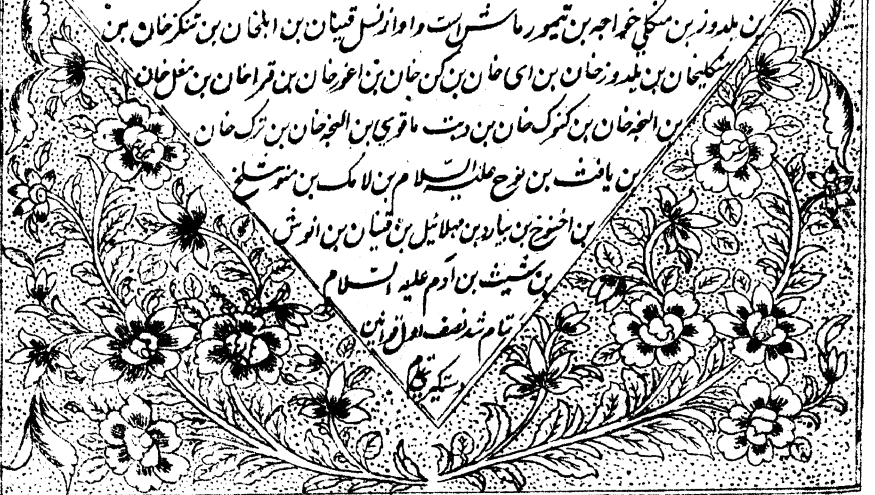 بن یلدوز بن منکلی خواجه بن تیمور ماش است و او از نسل قیان بن ایلخان بن تنکز خان بن
منکلیخان بن یلدوز خان بن ای خان بن کن خان بن اغوز خان بن قرا خان بن مغل خان
بن النجه خان بن کیوک خان بن دیب باقوی بن النجه خان بن ترک خان
بن یافث بن نوح علیه السلام بن لامک بن متوشلخ
بن اخنوخ بن یارد بن مهلائیل بن قینان بن انوش
بن شیث بن آدم علیه السلام
تمام شد نصف اول از این